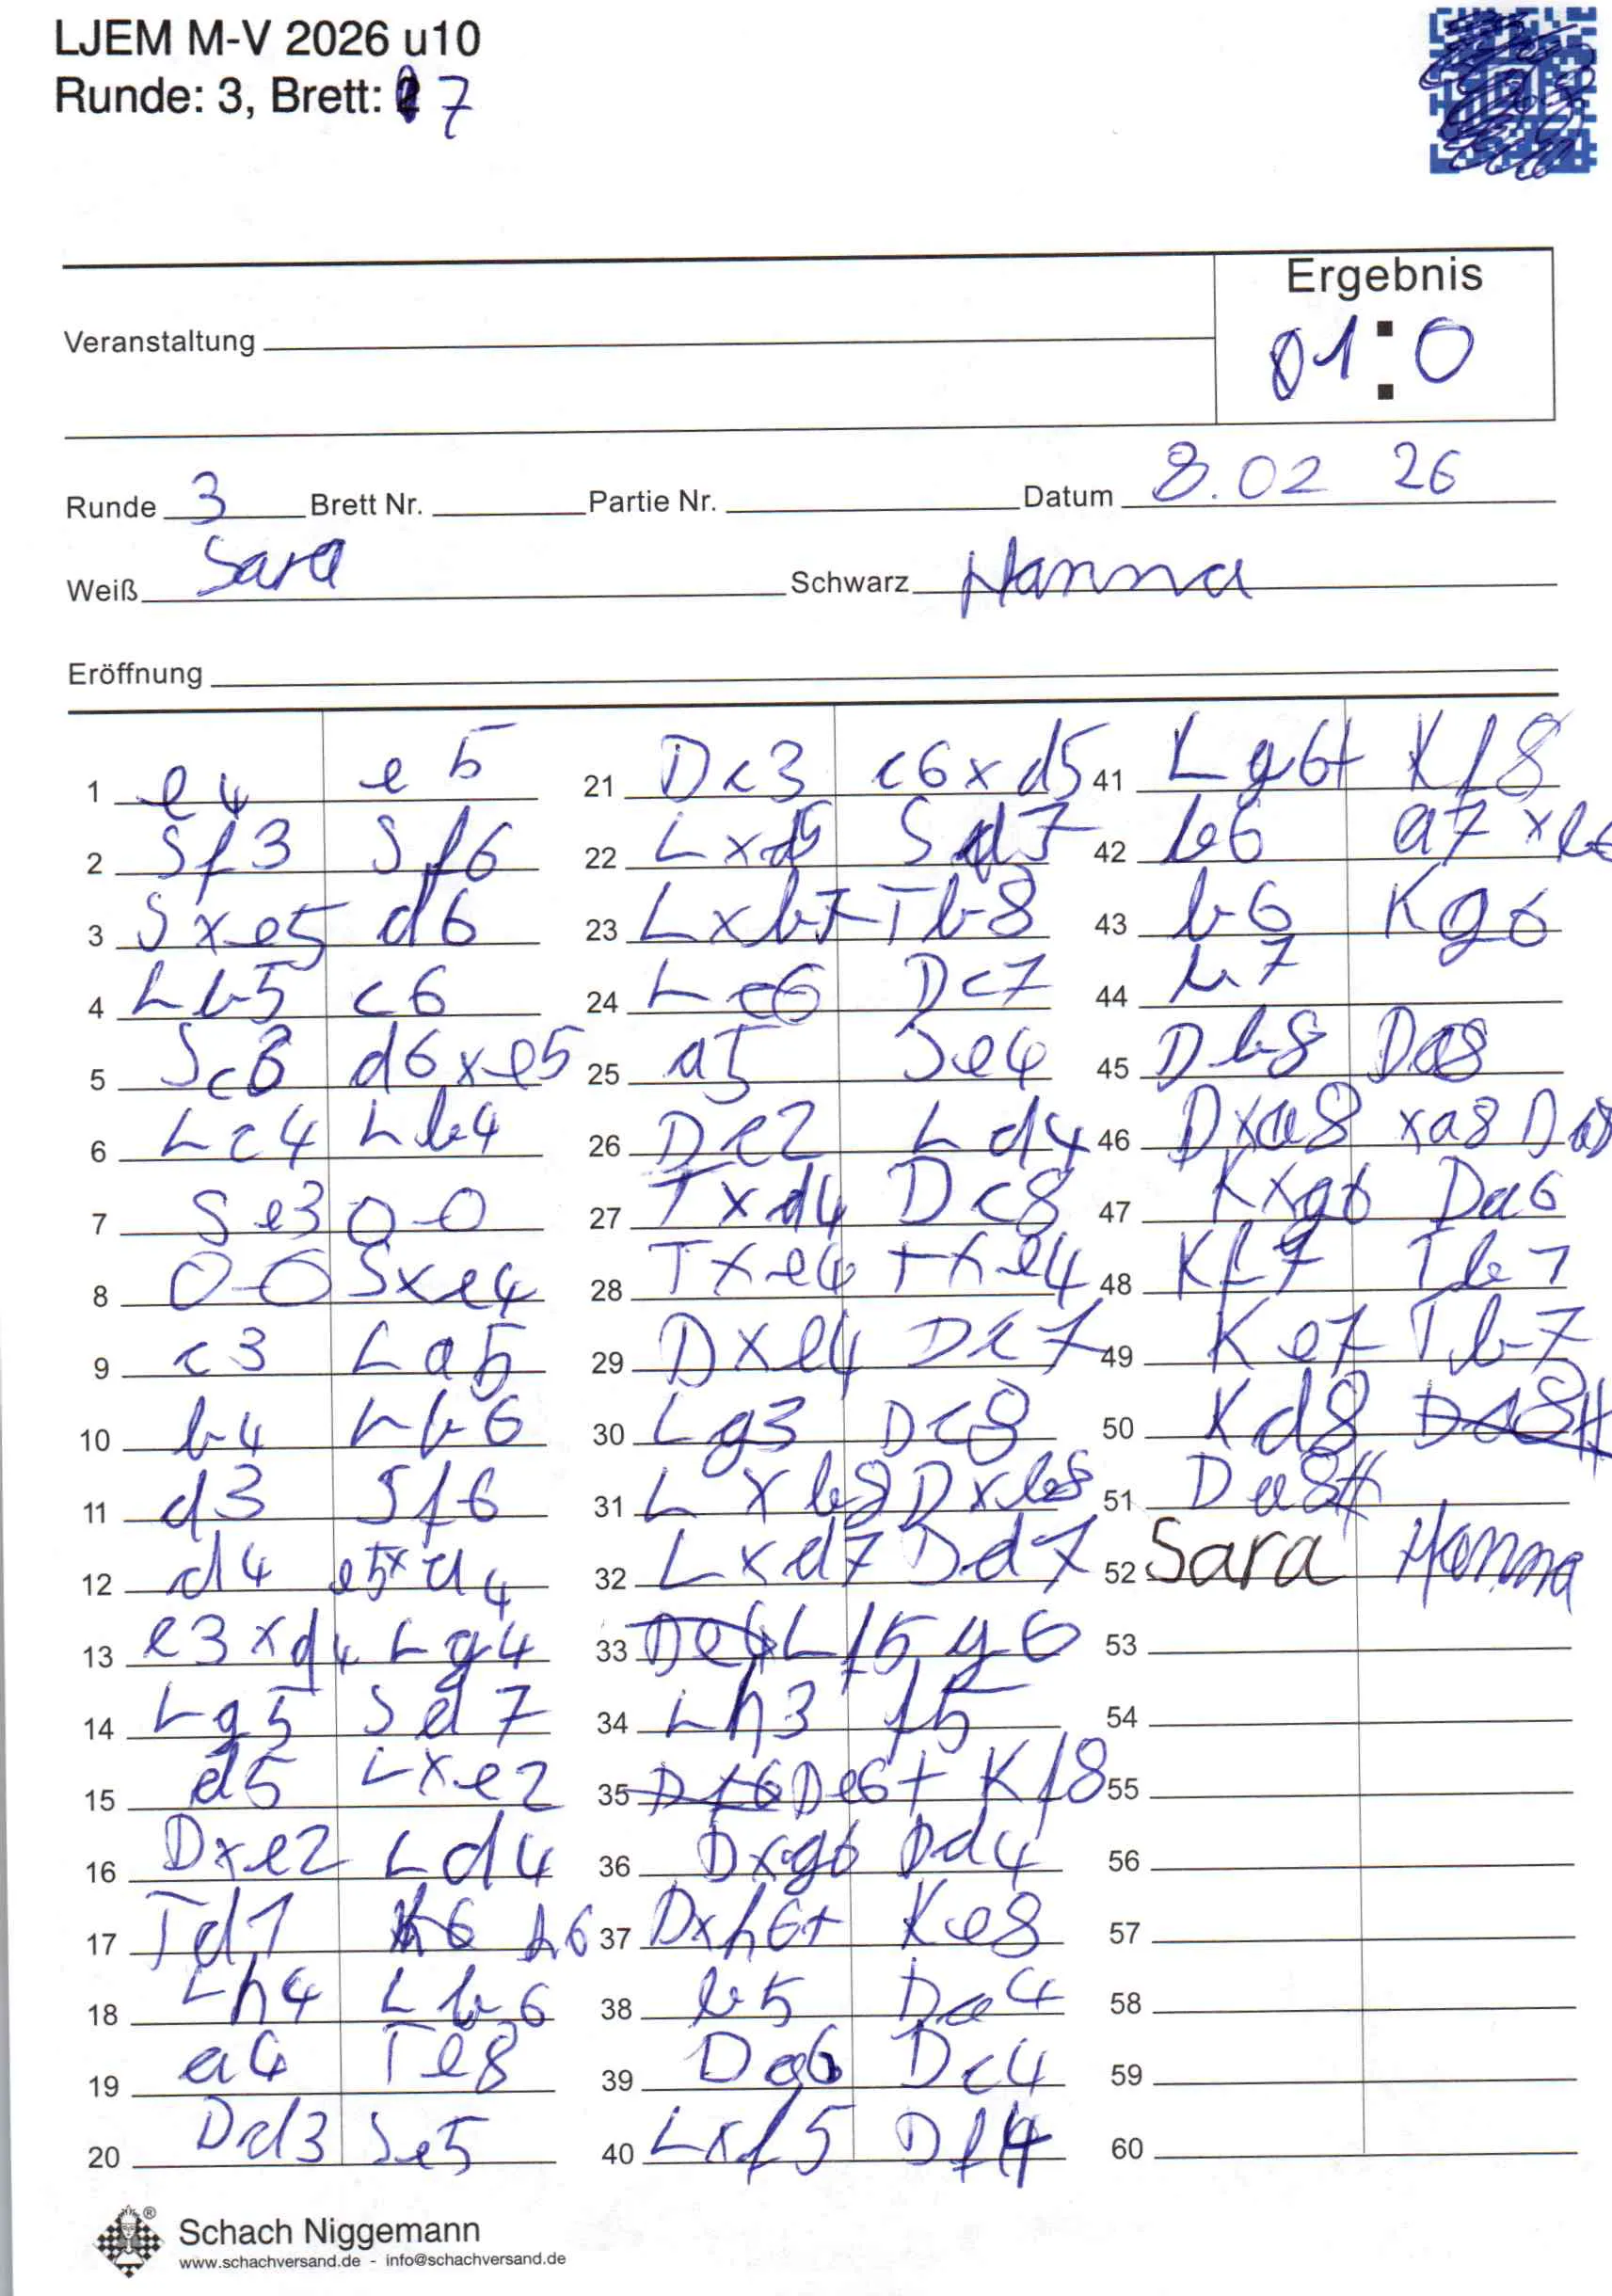 LJEM M-V 2026 u10
Runde: 3, Brett: 7
Ergebnis
Veranstaltung
1:0
Runde 3 Brett Nr. Partie Nr. Datum 8.02 26
Weiß Sara Schwarz Hanna
Eröffnung
1 e4 e5
2 Sf3 Sf6
3 Sxe5 d6
4 Lb5 c6
5 Sc3 d6xe5
6 Lc4 Lb4
7 Se3 0-0
8 0-0 Sxe4
9 c3 La5
10 b4 Lb6
11 d3 Sf6
12 d4 e5xd4
13 e3xd4 Lg4
14 Lg5 Sd7
15 d5 Lxe2
16 Dxe2 Ld4
17 Td1 h6
18 Lh4 Lb6
19 a4 Te8
20 Dd3 Se5
21 Dc3 c6xd5
22 Lxd5 Sd7
23 Lxb7 Tb8
24 Lc6 Dc7
25 a5 Se4
26 De2 Ld4
27 Txd4 Dc8
28 Txe4 Txe4
29 Dxe4 Dc7
30 Lg3 Dc8
31 Lxb8 Dxb8
32 Lxd7 Dd7
33 Lf5 g6
34 Lh3 f5
35 De6+ Kf8
36 Dxg6 Dd4
37 Dxh6+ Ke8
38 b5 Da4
39 Dg6 Dc4
40 Lxf5 Df4
41 Lg6+ Kf8
42 b6 a7x
43 b6 Kg6
44 b7
45 Db8 Da8
46 Dxa8 xa8 D
47 Kxg6 Da6
48 Kf7 Tb7
49 Ke7 Tb7
50 Kd8
51 Da8#
52 Sara Hanna
53
54
55
56
57
58
59
60
Schach Niggemann
www.schachversand.de - info@schachversand.de